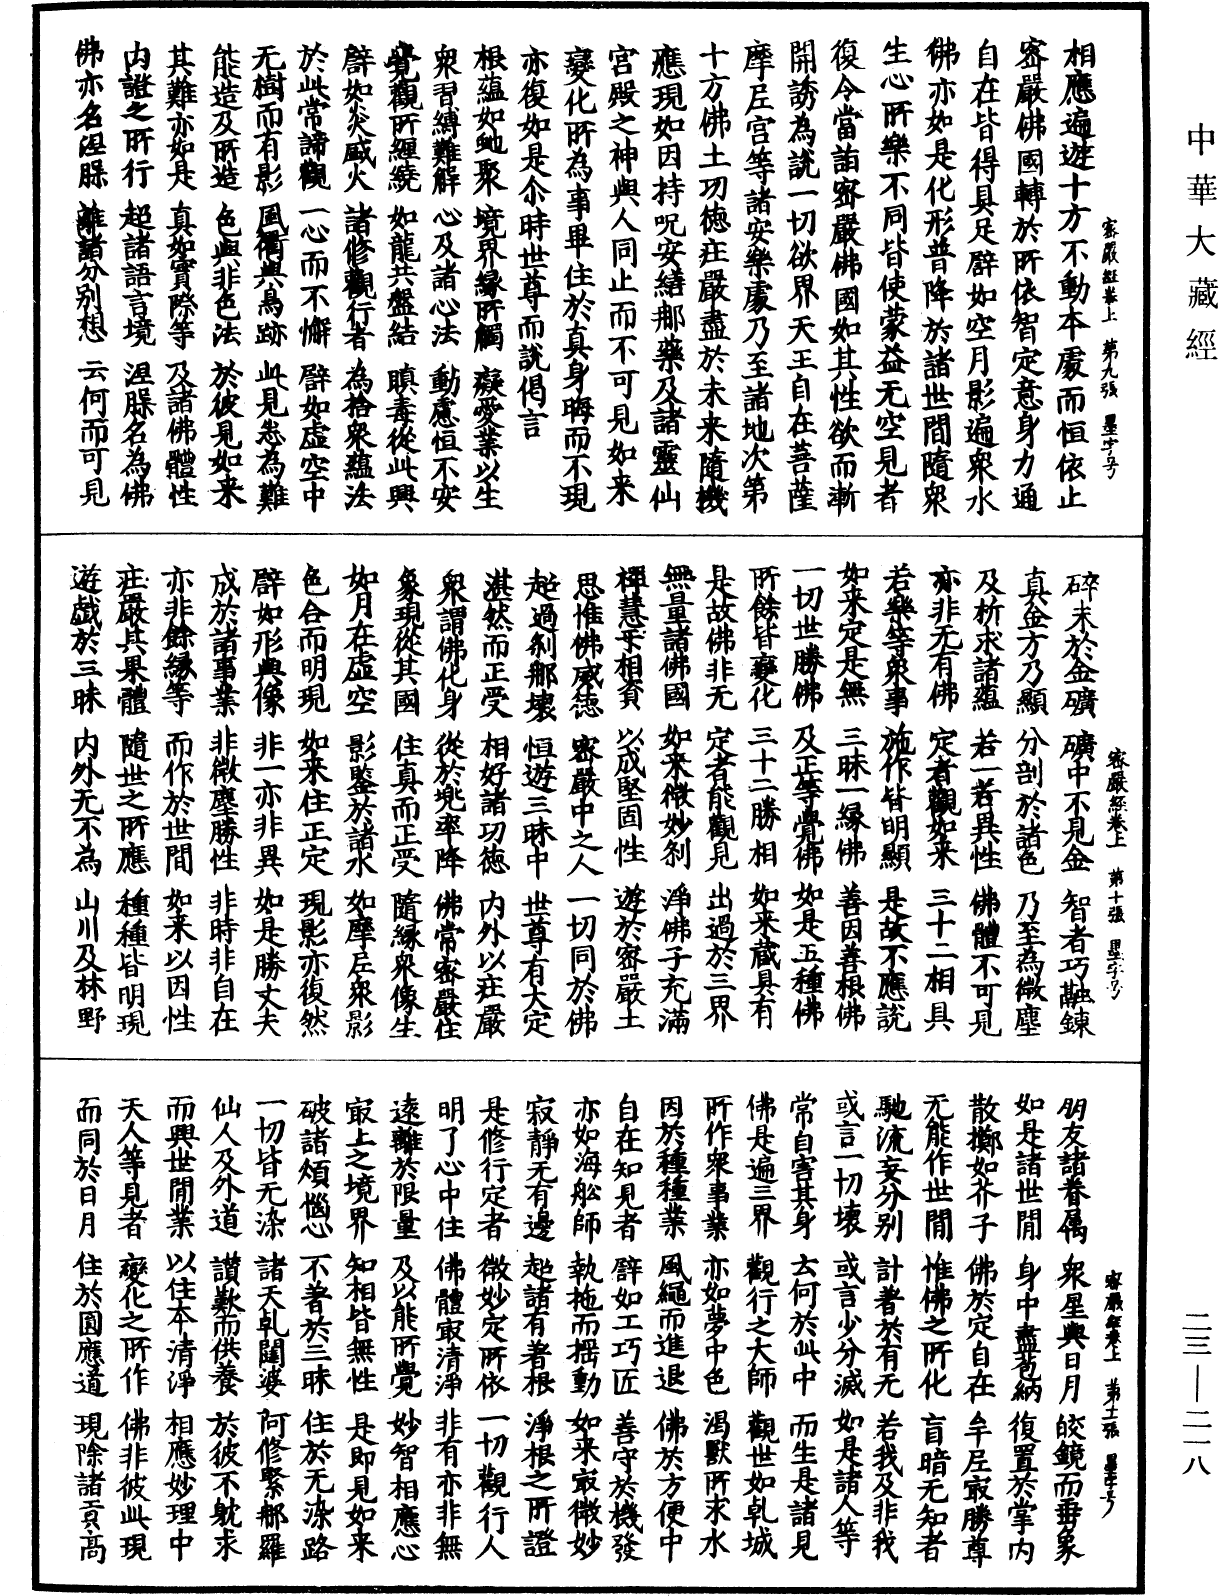 中華大藏經
相應遍遊十方不動本處而恒依止
密嚴佛國轉於所依智定意身力通
自在皆得具足譬如空月影遍衆水
佛亦如是化形普降於諸世間隨衆
生心所樂不同皆使蒙益无空見者
復令當詣密嚴佛國如其性欲而漸
開誘為說一切欲界天王自在菩薩
摩尼宮等諸安樂處乃至諸地次第
十方佛土功德莊嚴盡於未来隨機
應現如因持呪安繕那藥及諸靈仙
宮殿之神與人同止而不可見如来
變化所為事畢住於真身晦而不現
亦復如是尒時世尊而說偈言
根蘊如虵聚 境界緣所觸 癡愛業以生
衆習縛難解 心及諸心法 動慮恒不安
覺觀所纏繞 如龍共盤結 瞋毒從此興
譬如炎盛火 諸修觀行者 為捨衆蘊法
於此常諦觀 一心而不懈 譬如虛空中
无樹而有影 風衢與鳥跡 此見悉為難
能造及所造 色與非色法 於彼見如来
其難亦如是 真如實際等 及諸佛體性
内證之所行 超諸語言境 涅槃名為佛
佛亦名涅槃 離諸分別想 云何而可見
密嚴經卷上 第九張 墨字号
碎末於金礦 礦中不見金 智者巧融鍊
真金方乃顯 分剖於諸色 乃至為微塵
及析求諸蘊 若一若異性 佛體不可見
亦非无有佛 定者觀如来 三十二相具
若樂等衆事 施作皆明顯 是故不應說
如来定是無 三昧一緣佛 善因善根佛
一切世勝佛 及正等覺佛 如是五種佛
所餘皆變化 三十二勝相 如来藏具有
是故佛非无 定者能觀見 出過於三界
無量諸佛國 如来微妙刹 淨佛子充滿
禪慧乎相資 以成堅固性 遊於密嚴土
思惟佛威德 密嚴中之人 一切同於佛
超過刹那壞 恒遊三昧中 世尊有大定
湛然而正受 相好諸功德 内外以莊嚴
衆謂佛化身 從於兜率降 佛常密嚴住
象現從其國 住真而正受 隨緣衆像生
如月在虛空 影鑒於諸水 如摩尼衆影
色合而明現 如来住正定 現影亦復然
譬如形與像 非一亦非異 如是勝丈夫
成於諸事業 非微塵勝性 非時非自在
亦非餘緣等 而作於世間 如来以因性
莊嚴其果體 隨世之所應 種種皆明現
遊戯於三昧 内外无不為 山川及林野
密嚴經卷上 第十張 墨字号
朋友諸眷属 衆星與日月 皎鏡而垂象
如是諸世間 身中盡苞納 復置於掌内
散擲如芥子 佛於定自在 牟尼㝡勝尊
无能作世間 惟佛之所化 盲暗无知者
馳流妄分別 計著於有无 若我及非我
或言一切壞 或言少分滅 如是諸人等
常自害其身 去何於此中 而生是諸見
佛是遍三界 觀行之大師 觀世如乹城
所作衆事業 亦如夢中色 渴獸所求水
因於種種業 風繩而進退 佛於方便中
自在知見者 譬如工巧匠 善守於機發
亦如海舩師 執拖而揺動 如来㝡微妙
寂靜无有邊 超諸有著根 淨根之所證
是修行定者 微妙定所依 一切觀行人
明了心中住 佛體㝡清淨 非有亦非無
遠離於限量 及以能所覺 妙智相應心
㝡上之境界 知相皆無性 是即見如来
破諸煩惱心 不著於三昧 住於无染路
一切皆无染 諸天乹闥婆 阿修緊那羅
仙人及外道 讃歎而供養 於彼不躭求
而興世間業 以住本清淨 相應妙理中
天人等見者 變化之所作 佛非彼此現
而同於日月 住於圓應道 現除諸貢高
密嚴經卷上 第十一張 墨字号
二三—二一八